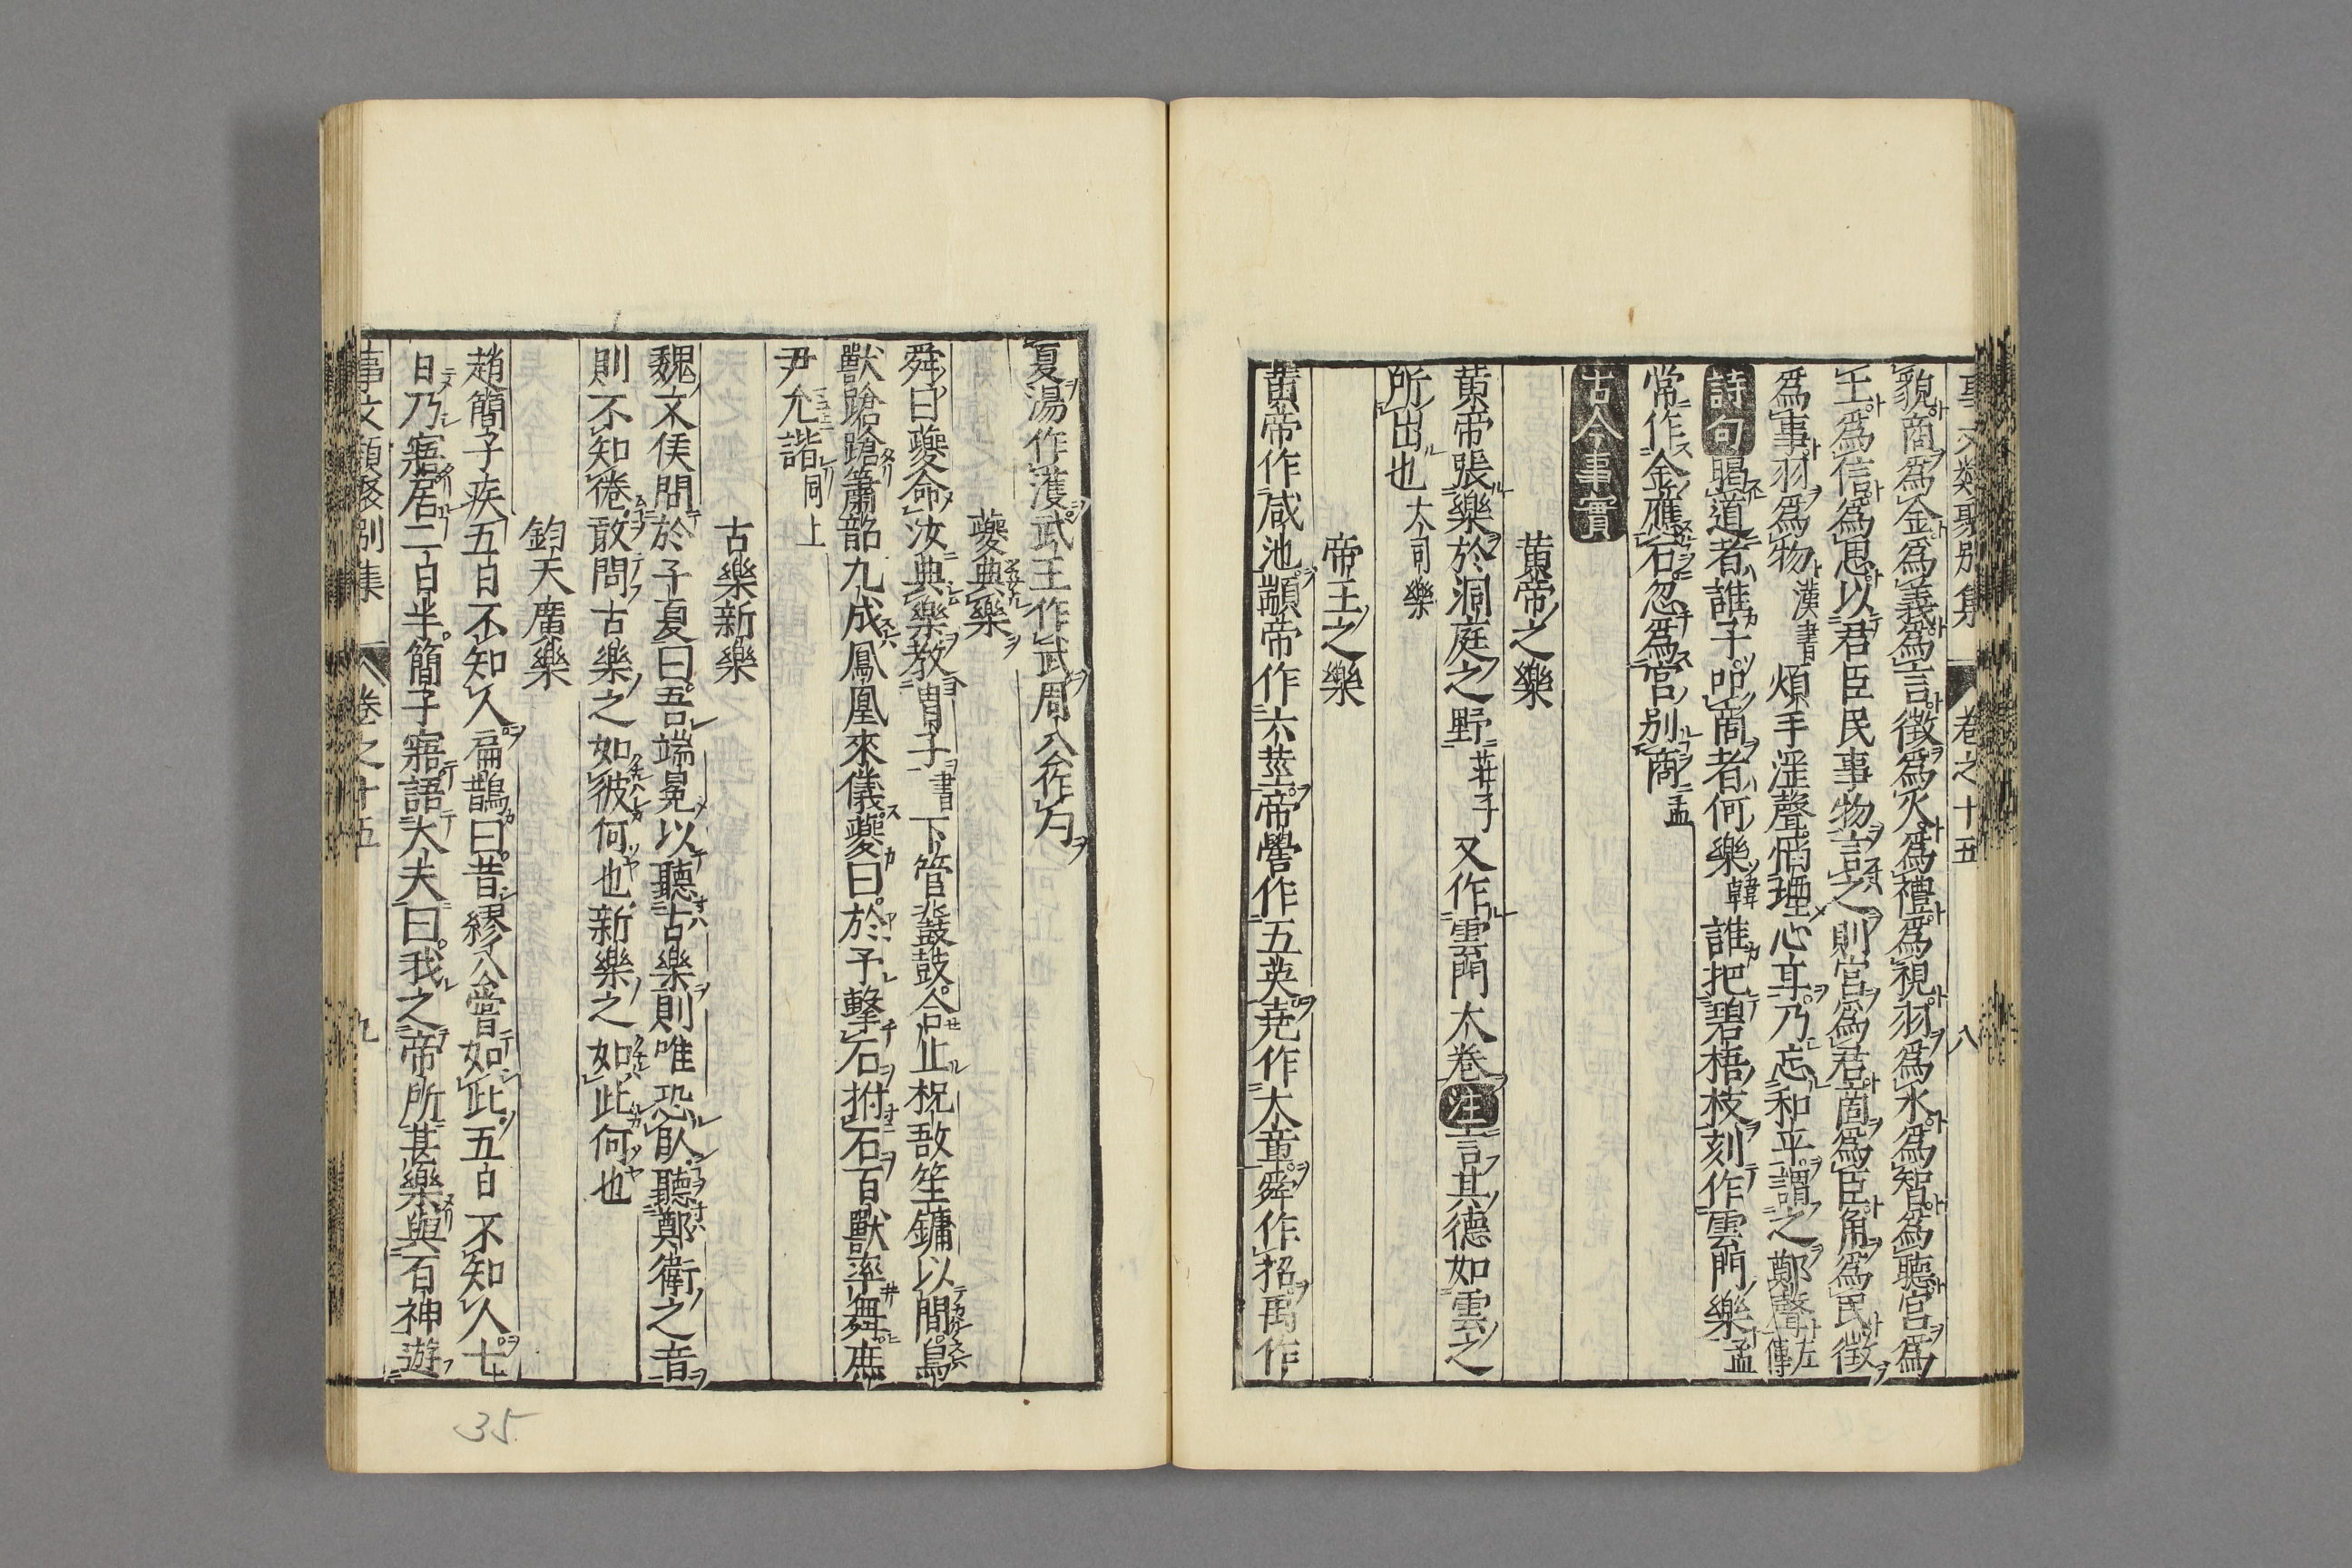 事文類聚別集 卷之十五 八
貌商爲金爲義爲言徵爲火爲禮爲視羽爲水爲智爲聽宮爲
土爲信爲思以君臣民事物言之則宮爲君商爲臣角爲民徵
爲事羽爲物漢書 煩手淫聲慆堙心耳乃忘和平謂之鄭聲左傳
詩句 暍道者誰子叩商者何樂韓 誰把碧梧枝刻作雲門樂孟
常作金應石忽爲宮別商孟
古今事實
黃帝之樂
黃帝張樂於洞庭之野莊子 又作雲門大卷注言其德如雲之
所出也大司樂
帝王之樂
黃帝作咸池顓帝作六莖帝嚳作五英堯作大章舜作招禹作
夏湯作濩武王作武周公作勺
夔典樂
舜曰夔命汝典樂教胄子書 下管鼗鼓合止柷敔笙鏞以間鳥
獸蹌蹌簫韶九成鳳凰來儀夔曰於予擊石拊石百獸率舞庶
尹允諧同上
古樂新樂
魏文侯問於子夏曰吾端冕以聽古樂則唯恐臥聽鄭衛之音
則不知倦敢問古樂之如彼何也新樂之如此何也
鈞天廣樂
趙簡子疾五日不知人扁鵲曰昔繆公嘗如此五日不知人七
日乃寤居二日半簡子寤語大夫曰我之帝所甚樂與百神遊
事文類聚別集 卷之十五 九
35